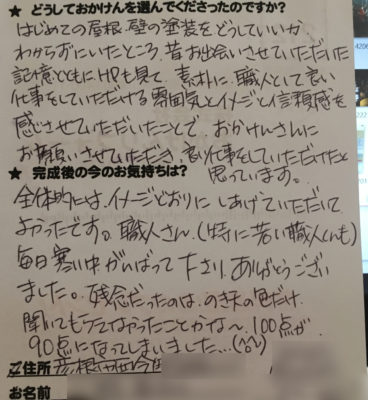 ★ どうしておかけんを選んでくださったのですか?
はじめての屋根・壁の塗装をどうしていいか
わからずにいたところ、昔お出会いさせていただいた
記憶とともにHPも見て、素朴に、職人として良い
仕事をしていただける雰囲気とイメージと信頼感を
感じさせていただいたことで、おかけんさんに
お願いさせていただき、良い仕事をしていただけたと
思っています。
★ 完成後の今のお気持ちは?
全体的には、イメージどおりにしあげていただいて
よかったです。職人さん、(特に若い職人くんも)
毎日寒い中がんばって下さり、ありがとうござい
ました。残念だったのは、のき天の色だけ
聞いてもらてなかったことかな~、100点が
90点になってしまいました…(^o^)
ご住所 彦根市西今
お名前